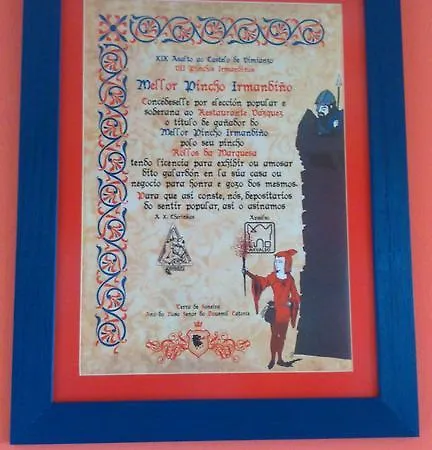 XIX Asalto ao Castelo de Vimianzo
VII Pinchos Irmandiños
Mellor Pincho Irmandiño
Concédeselle por elección popular e
soderana ao Restaurante Vazquez
o título de gañador do
Mellor Pincho Irmandiño
polo seu pincho
Rollos da Marquesa
tendo licencia para exhibir ou amosar
dito galardón en la súa casa ou
negocio para honra e gozo dos mesmos.
Para que así conste, nós, depositarios
do sentir popular, así o asinamos
A. X. Cherinkas
Asvalao
Terra de Soneira
Ano do Noso Señor do Dousmil Catorce